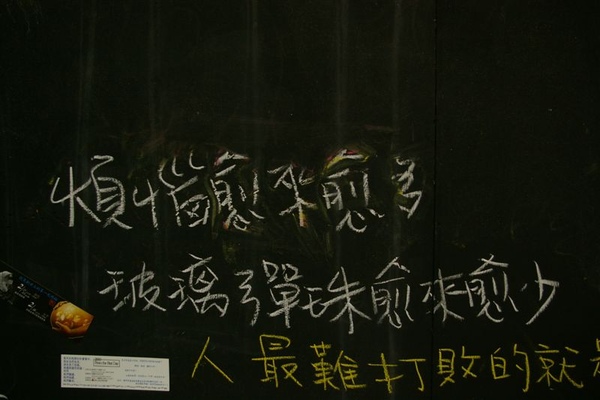 煩惱愈來愈多
玻璃彈珠愈來愈少
人最難打敗的就是